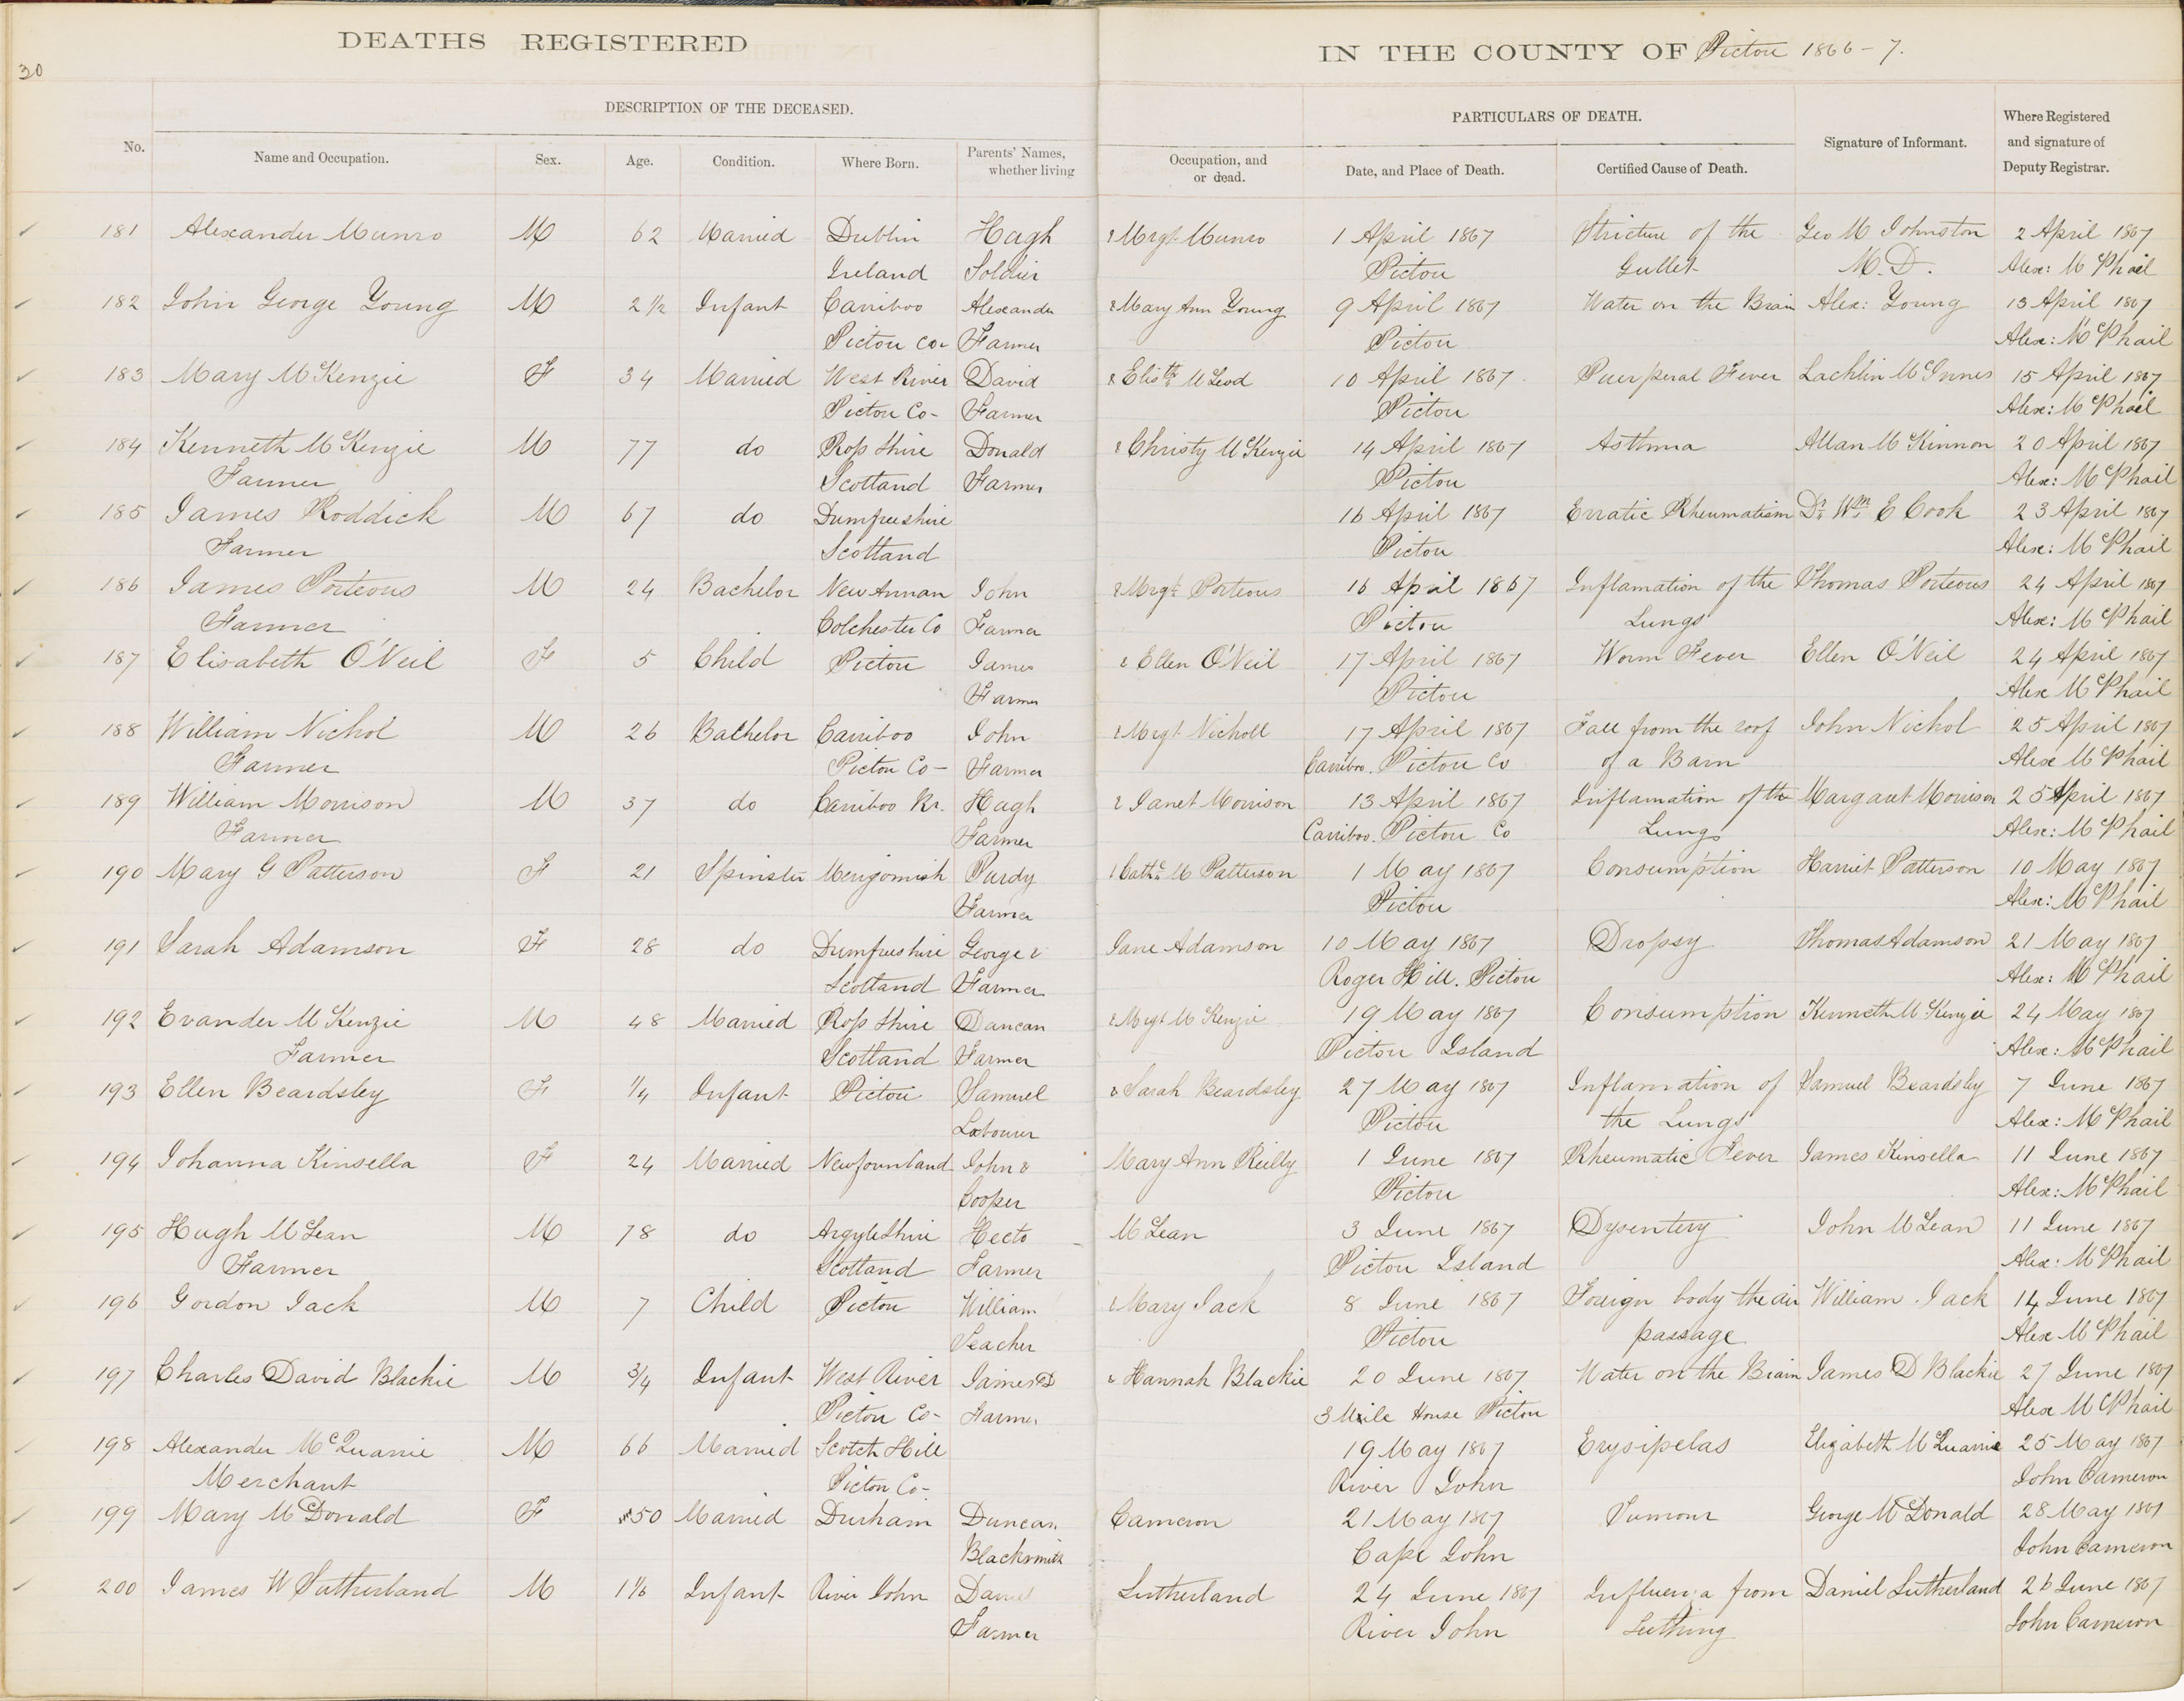 DEATHS REGISTERED IN THE COUNTY OF Pictou 1866-7.
30
DESCRIPTION OF THE DECEASED. PARTICULARS OF DEATH. Where Registered and signature of Deputy Registrar.
No. Name and Occupation. Sex. Age. Condition. Where Born. Parents' Names, whether living Occupation, and or dead. Date, and Place of Death. Certified Cause of Death. Signature of Informant.
181 Alexander Munro M 62 Married Dublin Hugh & Mrgt Munro 1 April 1867 Stricture of the Geo M Johnston 2 April 1867
Ireland Soldier Pictou Gullet M.D. Alex: McPhail
182 John George Young M 2 1/2 Infant Carriboo Alexander & Mary Ann Young 9 April 1867 Water on the Brain Alex: Young 13 April 1867
Pictou Co- Farmer Pictou Alex: McPhail
183 Mary McKenzie F 34 Married West River David & Elisth McLeod 10 April 1867 Puerperal Fever Lachlin McInnes 15 April 1867
Pictou Co- Farmer Pictou Alex: McPhail
184 Kenneth McKenzie M 77 do Ross Shire Donald & Christy McKenzie 14 April 1867 Asthma Allan McKinnon 20 April 1867
Farmer Scotland Farmer Pictou Alex: McPhail
185 James Roddick M 67 do Dumfreeshire 16 April 1867 Erratic Rheumatism Dr. Wm. E Cook 23 April 1867
Farmer Scotland Pictou Alex: McPhail
186 James Porteous M 24 Bachelor New Annan John & Mrgt Porteous 16 April 1867 Inflamation of the Thomas Porteous 24 April 1867
Farmer Colchester Co Farmer Pictou Lungs Alex: McPhail
187 Elisabeth O'Neil F 5 Child Pictou James & Ellen O'Neil 17 April 1867 Worm Fever Ellen O'Neil 24 April 1867
Farmer Pictou Alex McPhail
188 William Nichol M 26 Bachelor Carriboo John & Mrgt Nicholl 17 April 1867 Fall from the roof John Nichol 25 April 1867
Farmer Pictou Co- Farmer Carriboo. Pictou Co of a Barn Alex McPhail
189 William Morrison M 37 do Carriboo Rr. Hugh & Janet Morrison 13 April 1867 Inflamation of the Margaret Morrison 25 April 1867
Farmer Farmer Carriboo. Pictou Co Lungs Alex: McPhail
190 Mary G Patterson F 21 Spinster Merigomish Purdy & Cathe. M Patterson 1 May 1867 Consumption Harriet Patterson 10 May 1867
Farmer Pictou Alex: McPhail
191 Sarah Adamson F 28 do Dumfreeshire George & Jane Adamson 10 May 1867 Dropsy Thomas Adamson 21 May 1867
Scotland Farmer Roger Hill. Pictou Alex: McPhail
192 Evander McKenzie M 48 Married Ross Shire Duncan & Mrgt McKenzie 19 May 1867 Consumption Kenneth McKenzie 24 May 1867
Farmer Scotland Farmer Pictou Island Alex: McPhail
193 Ellen Beardsley F 1/4 Infant Pictou Samuel & Sarah Beardsley 27 May 1867 Inflamation of Samuel Beardsley 7 June 1867
Labourer Pictou the Lungs Alex: McPhail
194 Johanna Kinsella F 24 Married Newfounland John & Mary Ann Reilly 1 June 1867 Rheumatic Fever James Kinsella 11 June 1867
Cooper Pictou Alex: McPhail
195 Hugh McLean M 78 do Argyle Shire Hecto - McLean 3 June 1867 Dysentery John McLean 11 June 1867
Farmer Scotland Farmer Pictou Island Alex: McPhail
196 Gordon Jack M 7 Child Pictou William & Mary Jack 8 June 1867 Foreign body the air William Jack 14 June 1867
Teacher Pictou passage Alex McPhail
197 Charles David Blackie M 3/4 Infant West River James D & Hannah Blackie 20 June 1867 Water on the Brain James D Blackie 27 June 1867
Pictou Co- Farmer 3 Mile House Pictou Alex McPhail
198 Alexander McQuarrie M 66 Married Scotch Hill 19 May 1867 Erysipelas Elizabeth McQuarrie 25 May 1867
Merchant Pictou Co- River John John Cameron
199 Mary McDonald F 50 Married Durham Duncan Cameron 21 May 1867 Tumour George McDonald 28 May 1867
Blacksmith Cape John John Cameron
200 James W Sutherland M Infant River John Daniel Sutherland 24 June 1867 Influenza from Daniel Sutherland 26 June 1867
Farmer River John Teething John Cameron